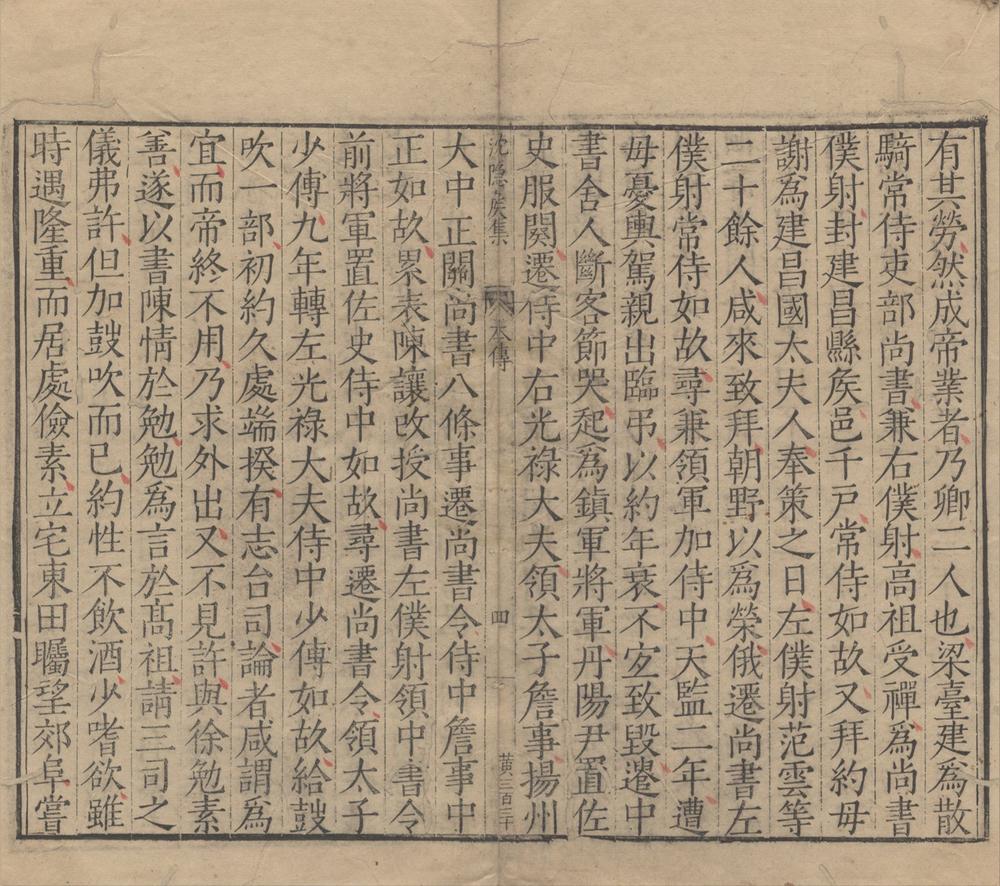 有其勞然成帝業者乃卿二人也梁臺建爲散
騎常侍吏部尚書兼右僕射高祖受禪爲尚書
僕射封建昌縣矦邑千戸常侍如故又拜約母
謝爲建昌國太夫人奉策之日左僕射范雲等
二十餘人咸來致拜朝野以爲榮俄遷尚書左
僕射常侍如故尋兼領軍加侍中天監二年遭
母憂輿駕親出臨弔以約年衰不宜致毀遣中
書舍人斷客節哭起爲鎮軍將軍丹陽尹置佐
史服闋遷侍中右光祿大夫領太子詹事揚州
沈隱矦集
本傳
四
黄三百三十
大中正關尚書八條事遷尚書令侍中詹事中
正如故累表陳讓改授尚書左僕射領中書令
前將軍置佐史侍中如故尋遷尚書令領太子
少傅九年轉左光祿大夫侍中少傅如故給鼓
吹一部初約久處端揆有志台司論者咸謂爲
宜而帝終不用乃求外出又不見許與徐勉素
善遂以書陳情於勉勉爲言於髙祖請三司之
儀弗許但加鼓吹而已約性不飲酒少嗜欲雖
時遇隆重而居處儉素立宅東田矚望郊阜嘗